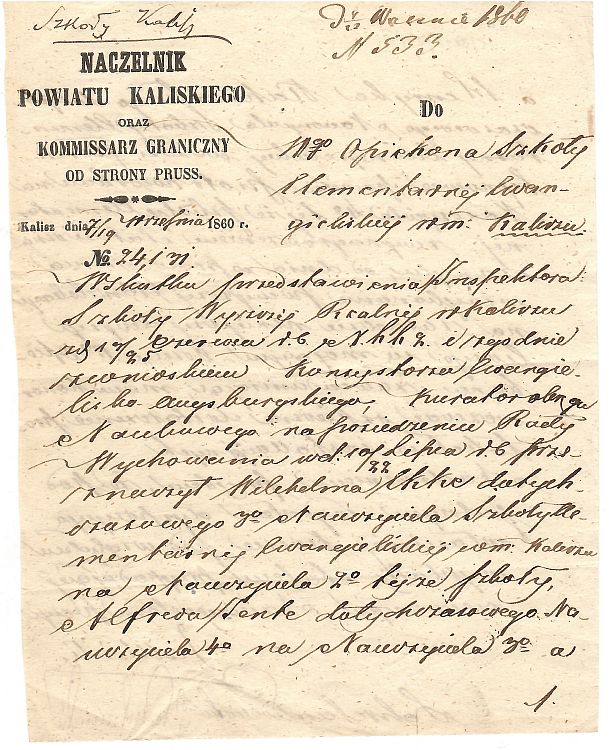 Szkoły Kalisz
D. Września 1860
N 533.
NACZELNIK
POWIATU KALISKIEGO
ORAZ
KOMMISSARZ GRANICZNY
OD STRONY PRUSS.
Kalisz dnia 7/19 Września 1860 r.
№ 24171
Do
Wgo Opiekuna Szkoły
Elementarnej Ewan-
gielickiej w m. Kaliszu.
Wskutku przedstawienia Inspektora
Szkoły Wyższej Realnej w Kaliszu
z d. 13/25 Czerwca r. b. i zgodnie
z wnioskiem Konsystorza Ewangie-
licko-Augsburgskiego, Kurator Okręgu
Naukowego na posiedzeniu Rady
Wychowania w d. 10/22 Lipca r. b. prze-
znaczył Wilchelma dotych-
czasowego 3o Nauczyciela Szkoły Ele-
mentarnej Ewangielickiej w m. Kaliszu
na Nauczyciela 2o tejże szkoły,
Alfreda dotychczasowego Na-
uczyciela 4o na Nauczyciela 3o a
1.